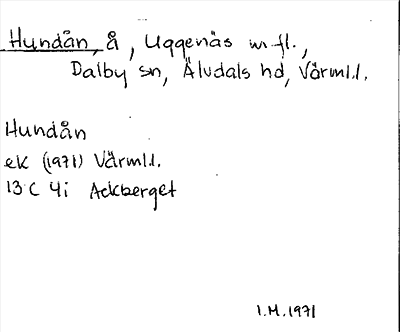 Hundån, å, Uggenäs m. fl.,
Dalby sn, Älvdals hd, Värml.l.
Hundån
ek (1971) Värml.l.
13 C 4i Ackberget
I.M. 1971